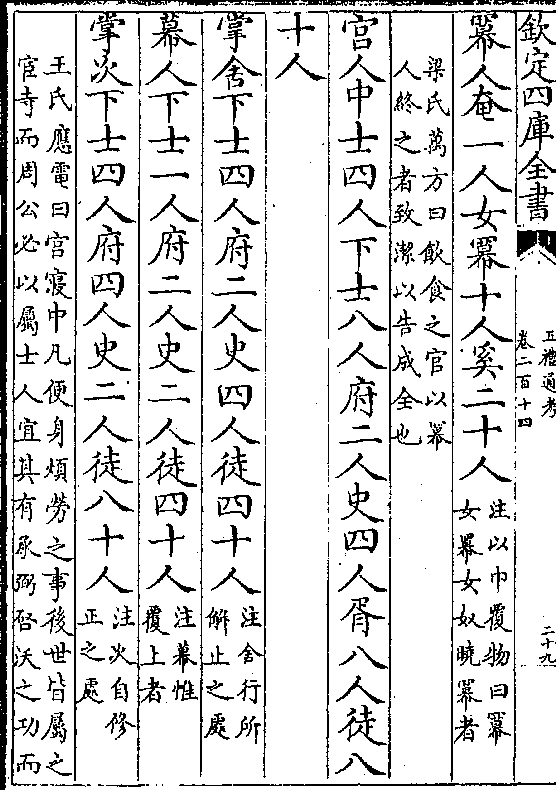 欽定四庫全書
五禮通考
卷二百十四
二十九
冪人奄一人女冪十人奚二十人
注以巾覆物曰冪
女冪女奴曉冪者
梁氏萬方曰飲食之官以冪
人終之者致潔以告成全也
宫人中士四人下士八人府二人史四人胥八人徒八
十人
掌舍下士四人府二人史四人徒四十人
注舍行所
解止之處
幕人下士一人府二人史二人徒四十人
注幕帷
覆上者
掌次下士四人府四人史二人徒八十人
注次自修
正之處
王氏應電曰宫寢中凡便身煩勞之事後世皆屬之
宦寺而周公必以屬士人宜其有承弼啓沃之功而